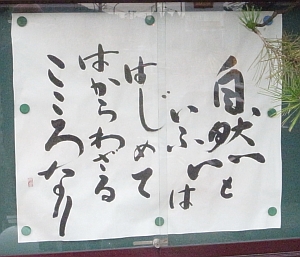 自然と
いふハは
はじめて
はからわざる
こころなり